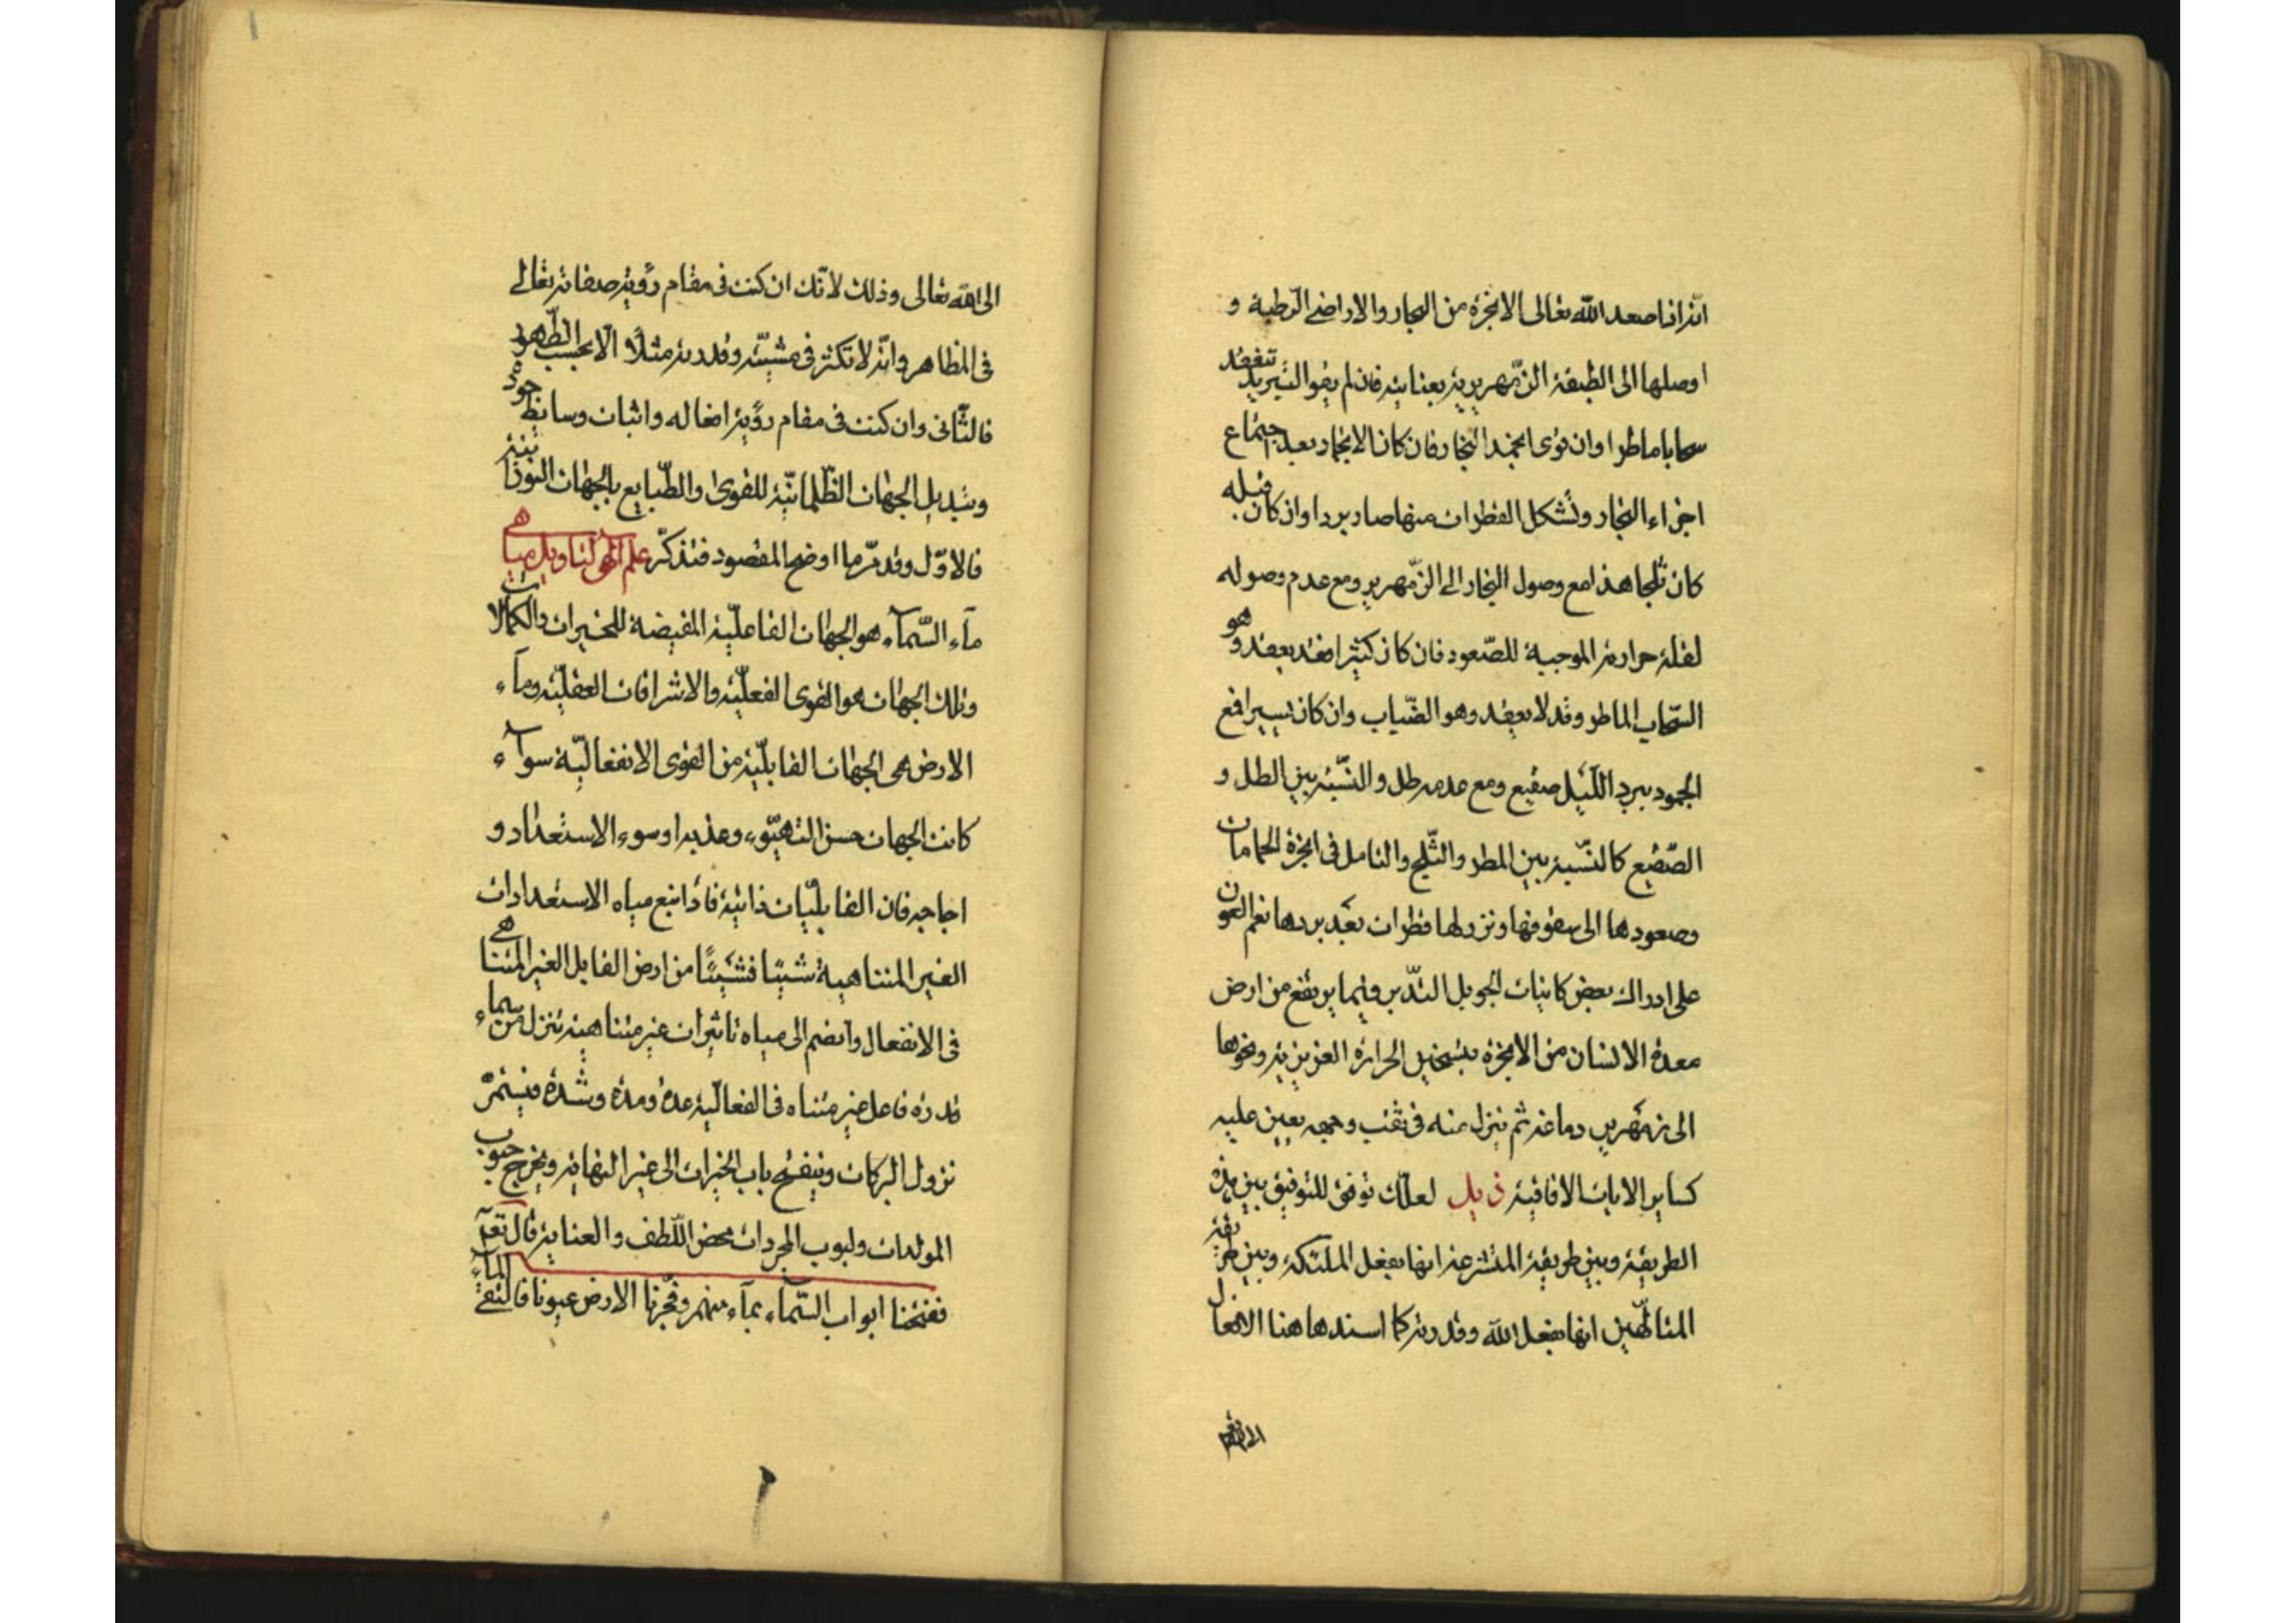 انه اذا صعد الله تعالى الابخرة من البحار والاراضي الرطبة و
اوصلها الى الطبقة الزمهريرية بعنايته فان لم يقو التبريد تنعقد
سحابا ماطرا وان قوى انجمد البخار فان كان الانجماد بعد اجتماع
اجزاء البخار وتشكل القطرات منها صار بردا وان كان قبله
كان ثلجا هذا مع وصول البخار الى الزمهرير ومع عدم وصوله
لقلة حرارته الموجبة للصعود فان كان كثيرا فقد يعقد وهو
السّحاب الماطر وقد لا يعقد وهو الضّباب وان كان يسيرا فمع
الجمود ببرد اللّيل صقيع ومع عدمه طل والنّسبة بين الطل و
الصّقيع كالنّسبة بين المطر والثّلج والتامل فى ابخرة الحمامات
وصعودها الى سقوفها ونزولها قطرات بعد بردها نعم العون
على ادراك بعض كاينات الجو بل التدّبر فيما يرتفع من ارض
معدة الانسان من الابخرة بتسخين الحرارة الغريزية ونحوها
الى زمهرير دماغه ثم ينزل منه فى ثقب وجهه يعين عليه
كساير الايات الافاقية ذيل لعلّك توفق للتوفيق بين هذه
الطريقة وبين طريقة المتشرعة انها بفعل الملئكة وبين طريقة
المتالهّين انها بفعل الله وقدرته كما اسندها هنا الافعال
الى الله تعالى وذلك لانّك ان كنت فى مقام رؤية صفاته تعالى
فى المظاهر وانّه لا تكثر فى مشيّته وقدرته مثلاً الا بحسب الظّهور
فالثّانى وان كنت فى مقام رؤية افعاله واثبات وسايط جوده
وتبديل الجهات الظّلمانيّة للقوى والطّبايع بالجهات النورانية
فالاوّل وقد مرّ ما اوضح المقصود فتذكّر علم الهى لتاويل مياهى
مآء السّمآء هو الجهات الفاعليّة المفيضة للخيرات والكمالات
وتلك الجهات هو القوى الفعليّة والاشراقات العقليّة ومآء
الارض هى الجهات القابليّة من القوى الانفعاليّة سوآء
كانت الجهات حسن التهيّوء وعذبه او سوء الاستعداد و
اجاجه فان القابليّات ذاتية فاذا نبع مياه الاستعدادات
الغير المتناهية شيئًا فشيئًا من ارض القابل الغير المتناهى
فى الانفعال وانضم الى مياه تاثيرات غير متناهية تنزل من سماء
قدرة فاعل غير متناه فى الفعاليّة عدة ومدة وشدة فيستمرّ
نزول البركات وينفتح باب الخيرات الى غير النهاية ويخرج حبوب
المولدات ولبوب المجردات بمحض اللّطف والعناية قال تعم
ففتحنا ابواب السّمآء بمآء منهمر وفجّرنا الارض عيونا فالتقى المآء